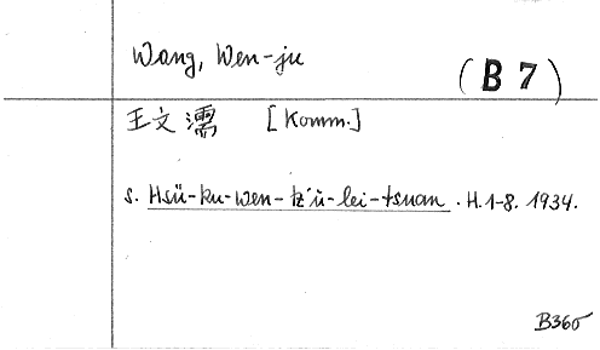 Wang, Wen-ju
(B 7)
王文濡 [Komm.]
s. Hsü-ku-wen-tz'ŭ-lei-tsuan. H.1-8. 1934.
B360